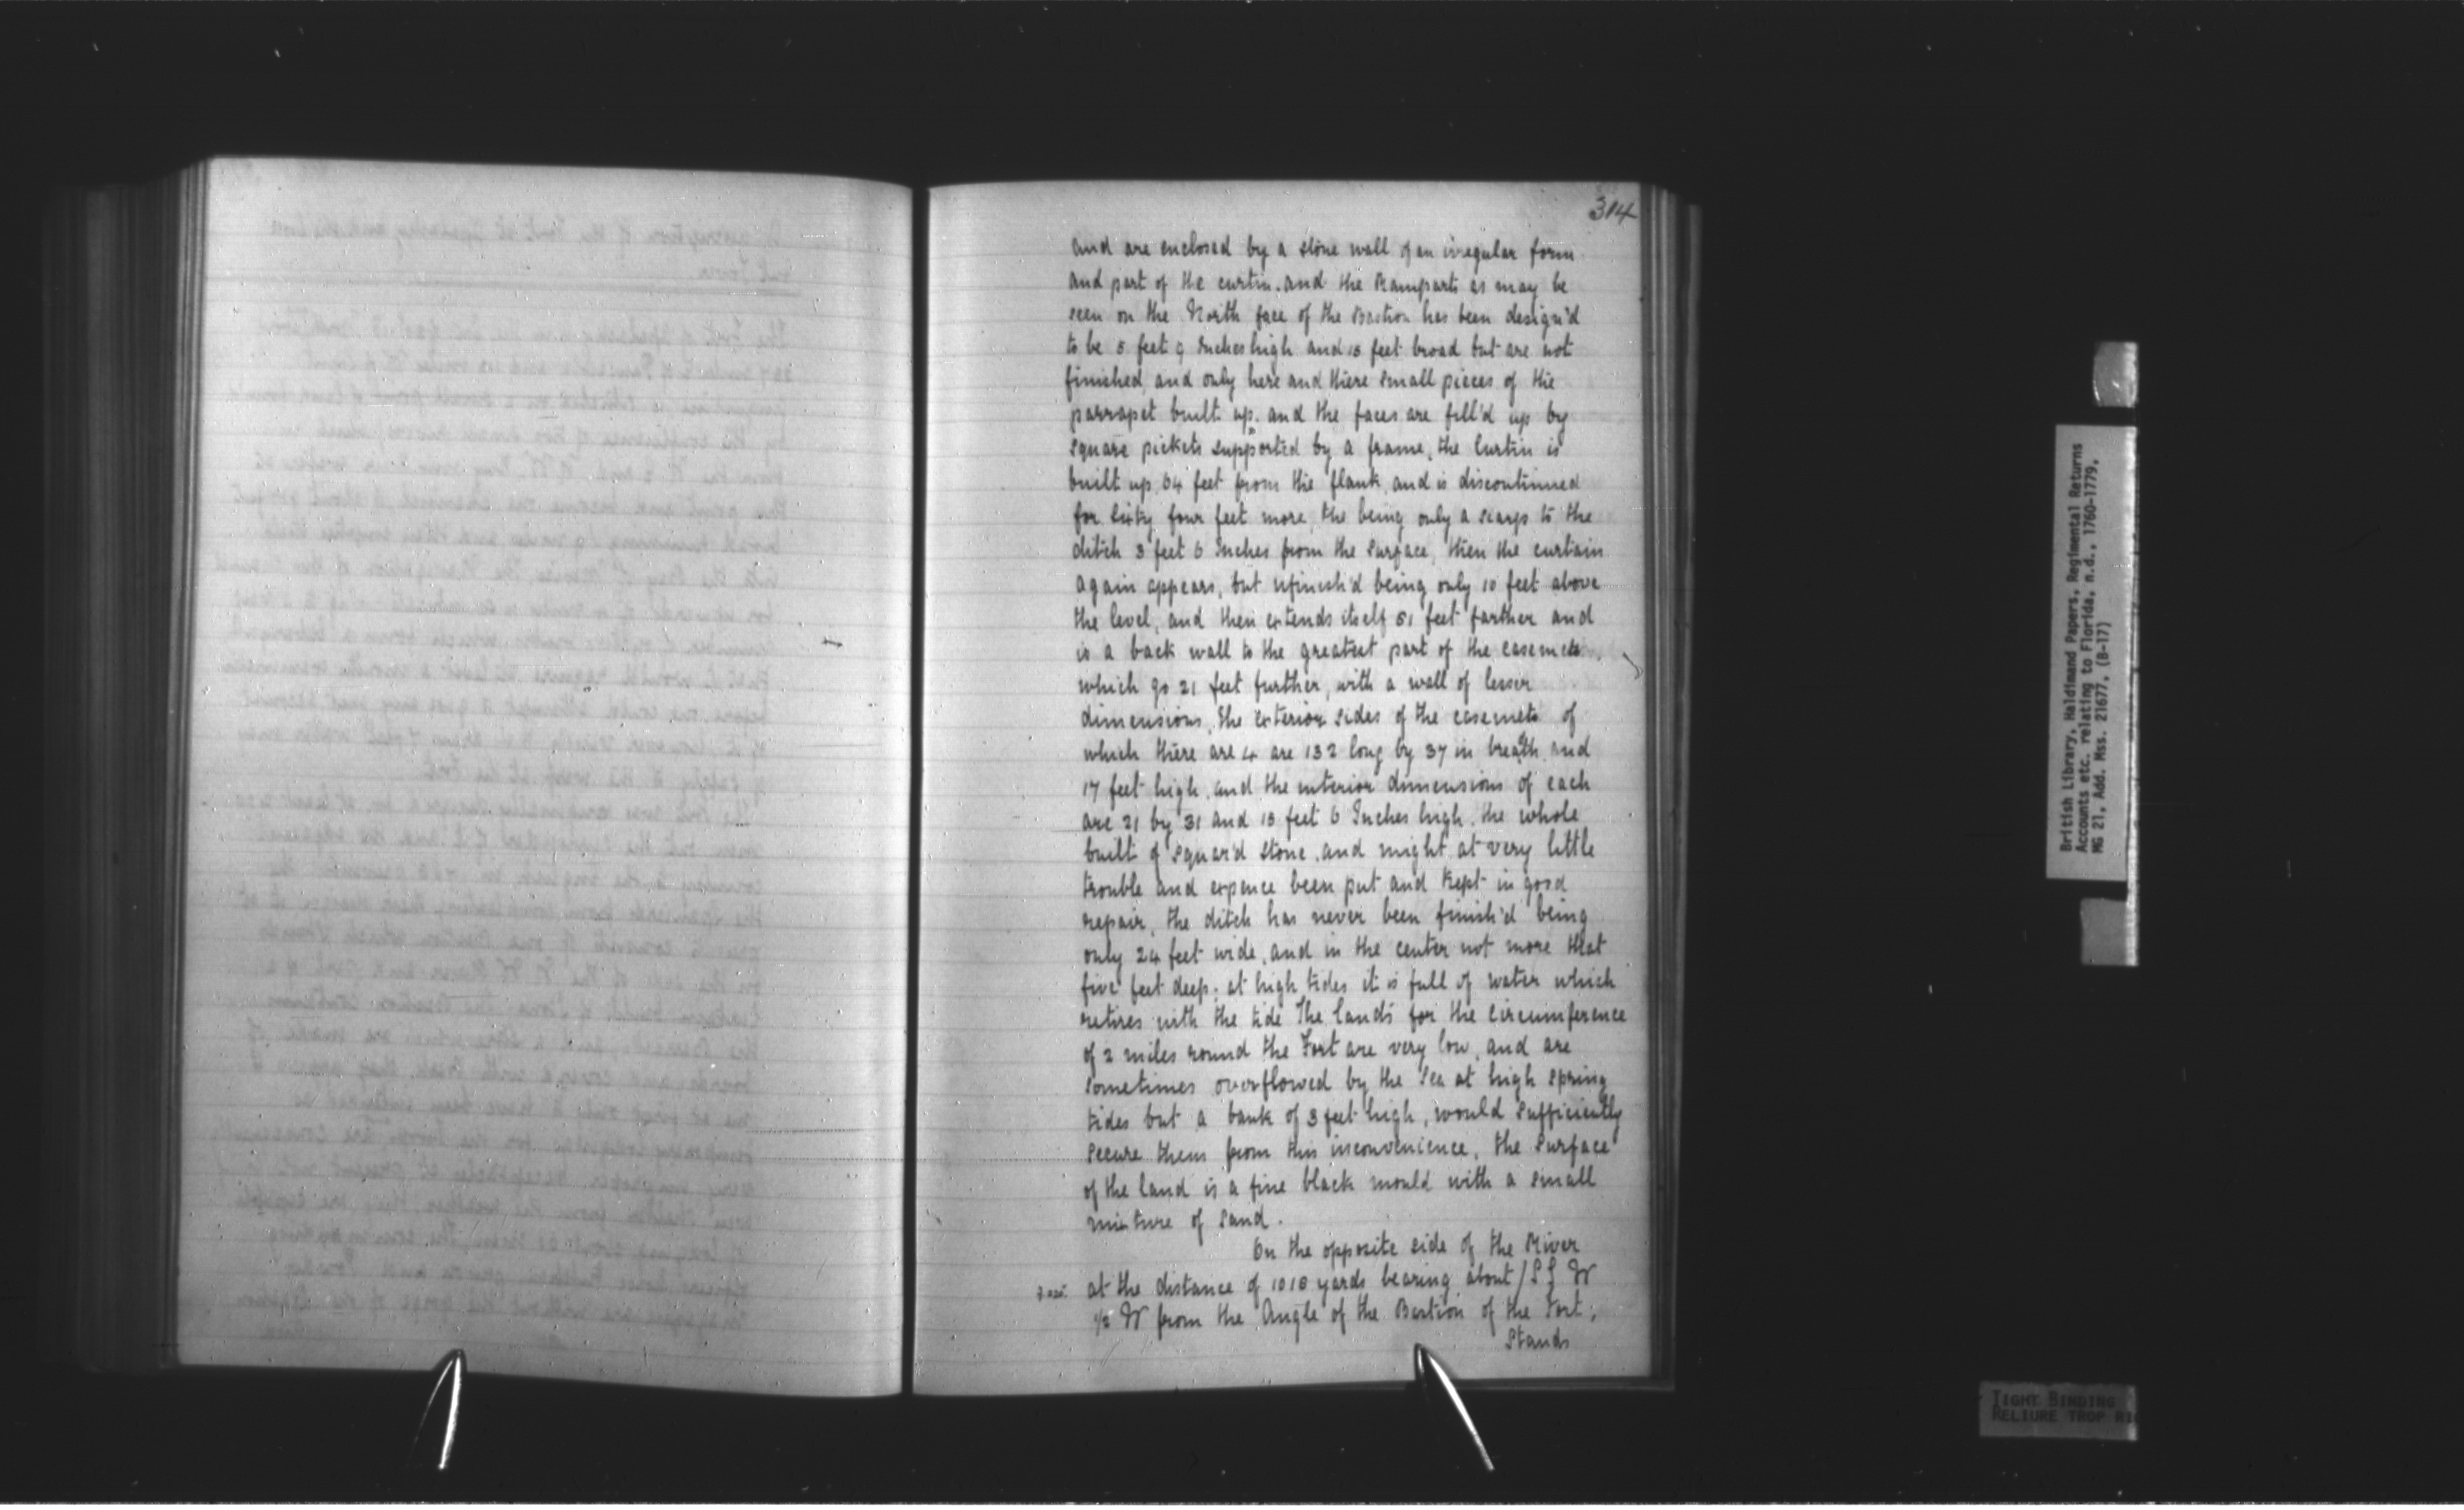 314
and are enclosed by a stone wall of an irregular form
and part of the curtin. and the Ramparts as may be
seen on the North face of the Bastion has been design'd
to be 5 feet 9 Inches high and 15 feet broad but are not
finished, and only here and there small pieces of the
parrapet built up, and the faces are fill'd up by
square pickets supported by a frame, the Curtin is
built up 64 feet from the flank, and is discontinued
for sixty four feet more, the being only a scarp to the
ditch 3 feet 6 Inches from the surface, then the curtain
again appears, but unfinish'd being only 10 feet above
the level, and then extends itself 51 feet farther and
is a back wall to the greatest part of the casemets,
which go 21 feet further, with a wall of lesser
dimensions, the exterior sides of the casemets of
which there are 4 are 132 long by 37 in breath and
17 feet high, and the interior dimensions of each
are 21 by 31 and 15 feet 6 Inches high, the whole
built of squar'd stone, and might at very little
trouble and expence been put and kept in good
repair, the ditch has never been finish'd being
only 24 feet wide, and in the center not more that
five feet deep; at high tides it is full of water which
retires with the tide The lands for the circumference
of 2 miles round the Fort are very low, and are
sometimes overflowed by the Sea at high spring
tides but a bank of 3 feet high, would sufficiently
secure them from this inconvenience, the surface
of the land is a fine black mould with a small
mixture of sand.
On the opposite side of the River
at the distance of 1018 yards bearing about / S W
1/2 W from the Angle of the Bastion of the Fort;
Stands
British Library, Haldimand Papers, Regimental Returns
Accounts etc. relating to Florida, n.d., 1760-1779,
MG 21, Add. Mss. 21677, (B-17)
TIGHT BINDING
RELIURE TROP